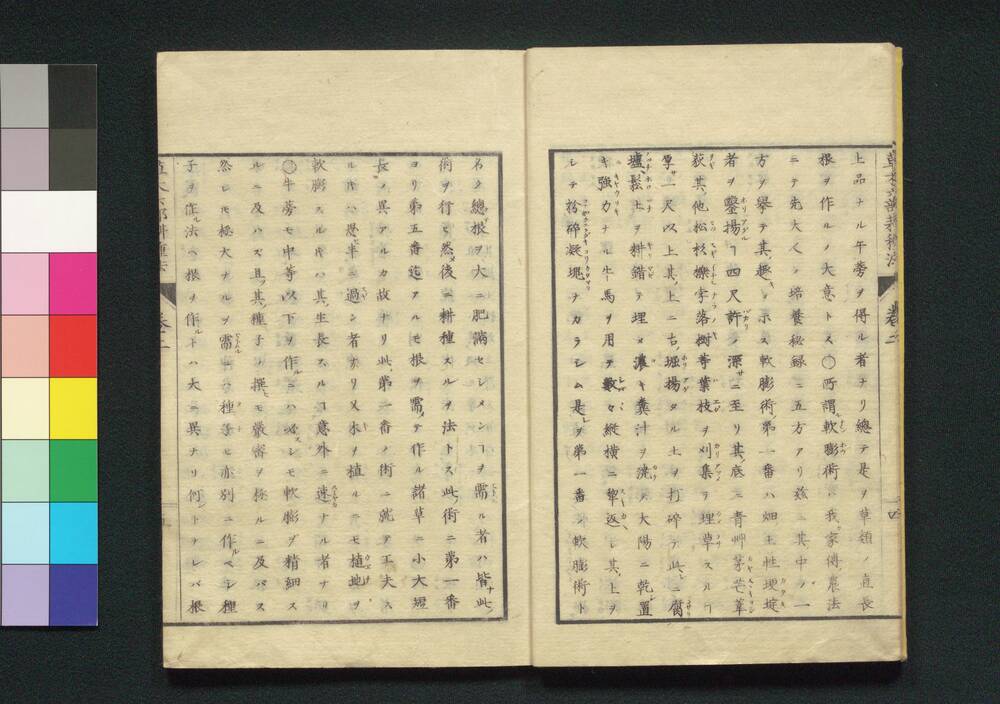 上品ナル牛蒡ヲ得ル者ナリ總テ是ヲ草類ノ直長
根ヲ作ルノ大意トス〇所謂軟膨術ハ我家傳農法
ニテ先大人ノ培養秘録ニ五方アリ茲ニ其中ノ一
方ヲ擧テ其趣キヲ示ス軟膨術第一番ハ畑土性堙埞
者ヲ鑿揚ヿ四尺許ノ深サニ至リ其底ニ青艸茅芒萆
荻其他松杉櫟等落樹等葉枝ヲ刈集テ埋草スルヿ
厚サ一尺以上其上ニ右堀揚タル土ヲ打碎テ此ニ腐
壚鬆土ヲ耕錯テ埋メ濃キ糞汁ヲ澆テ大陽ニ乾置
キ強力ナル牛馬ヲ用テ數々縱横ニ犂返シ其上ヲ
シテ粉碎凝塊ナカラシム是ヲ第一番ノ軟膨術ト
名ク總根ヲ大ニ肥滿セシメンヿヲ需ル者ハ皆此
術ヲ行ヒ然後ニ耕種スルヲ法トス此術ニ第一番
ヨリ第五番迄アルモ根ヲ需テ作ル諸草ニ小大短
長ノ異アルカ故ナリ此第一番ノ術ニ就テ工夫ス
ルトキハ思半ニ過ン者ナリ又木ヲ植ルニモ植地ヲ
軟膨スルトキハ其生長スルヿ意外ニ速ナル者ナリ
〇牛蒡モ中等以下ヲ作ルニハ必シモ軟膨ヲ精細ス
ルニ及ハス且其種子ノ撰モ嚴審ヲ極ルニ及バス
然レトモ極大ナルヲ需ルニハ種子モ亦別ニ作ルベシ種
子ヲ作ル法ハ根ヲ作ルトハ大ニ異ナリ何ントナレバ根